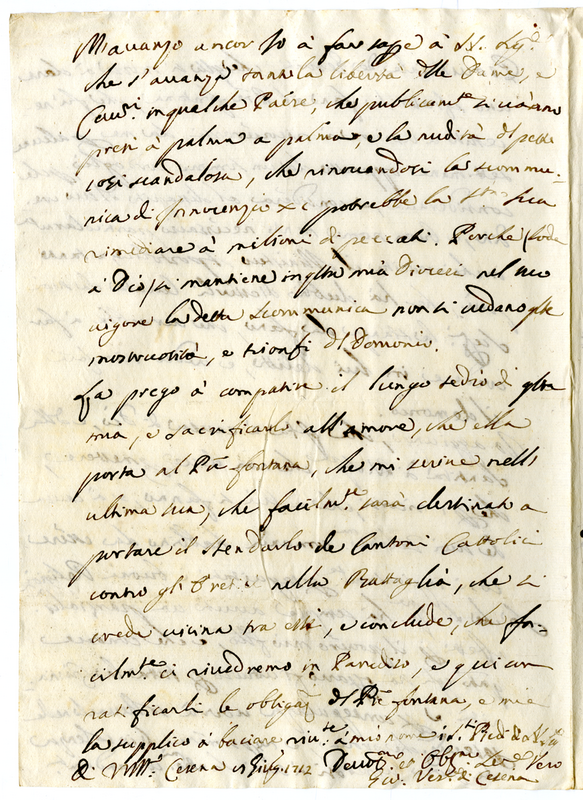 M'avanzo ancor Io à far sapp.e à V.S. Ill.
che s'avanzò tanto la libertà delle Dame, e
Cav.ri in qualche Paese, che publicam.te si
presi à palma a palma, e la nudità di petto
così scandalosa, che rinovandosi la scommu-
nica di Innocenzio XI potrebbe la S.tà Sua
rimediare à milioni di peccati. Perche (loda
à Dio) si mantiene in q.sta mia Diocesi nel suo
vigore la detta scommunica non si vedano q.ste
mostruosità, e trionfi del Demonio.
La prego à compatire il lungo tedio di q.sta
mia, e sacrificarlo all'amore, che ella
porta al P.re fontana, che mi scrive nell'
ultima sua, che facilm.te sarà destinato a
portare il stendardo de Cantoni Cattolici
contro gli Eretici nella Battaglia, che si
crede vicina tra essi, e conclude, che fa-
cilm.te ci rivedremo in Paradiso, e qui con
ratificarli le obligaz. del P.re fontana, e mie
la supplico à baciare riv.te à mio nome i S.ti Piedi
di Cesena Giug. 1712 Devot. et Obl. Ser. Vero
Gio. Vesc. di Cesena